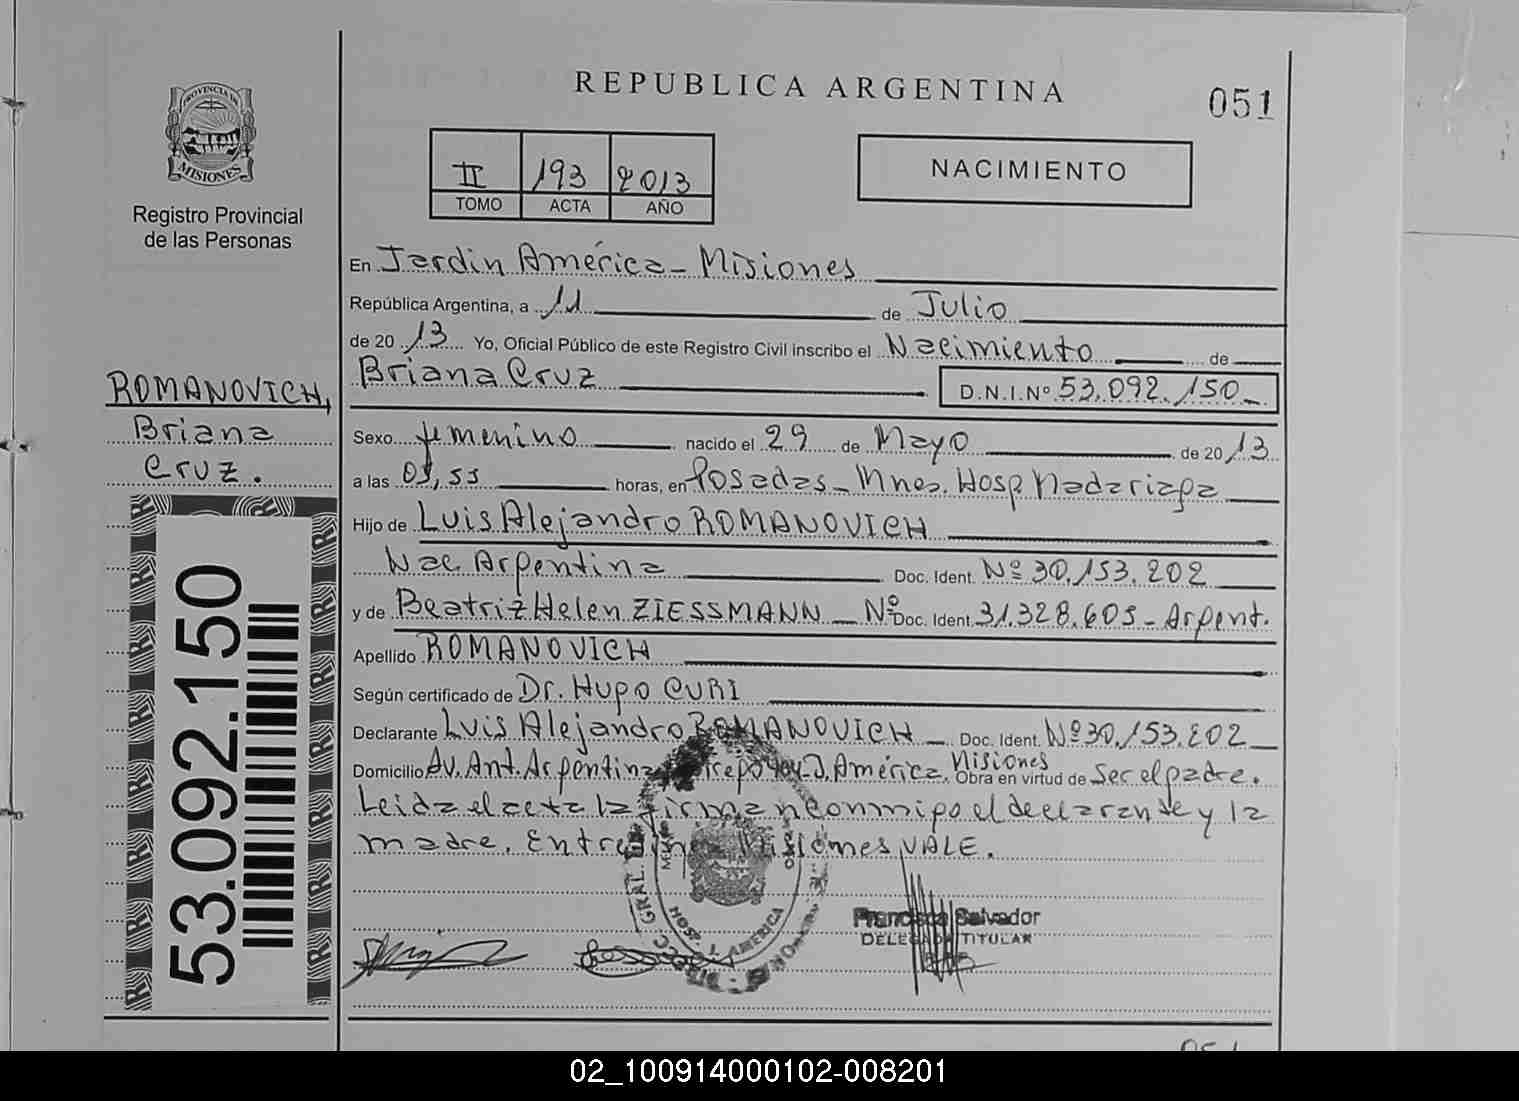 REPUBLICA ARGENTINA
051
PROVINCIA DE
MISIONES
Registro Provincial
de las Personas
II 193 2013
TOMO ACTA AÑO
NACIMIENTO
En Jardin América - Misiones
República Argentina, a 11 de Julio
de 20 13 Yo, Oficial Público de este Registro Civil inscribo el Nacimiento de
Briana Cruz D.N.I.Nº 53.092.150
ROMANOVICH,
Briana
Cruz.
53.092.150
Sexo femenino nacido el 29 de Mayo de 20 13
a las horas, en Posadas - Mnes. Hosp. Madariaga
Hijo de Luis Alejandro ROMANOVICH
Nac. Argentina Doc. Ident. Nº 30.153.202
y de Beatriz Helen ZIESSMANN - Nº Doc. Ident. 31.328.605 - Argent.
Apellido ROMANOVICH
Según certificado de Dr. Hugo CURI
Declarante Luis Alejandro ROMANOVICH - Doc. Ident. Nº 30.153.202
Misiones
Domicilio Av. Ant. Argentina J. América. Obra en virtud de Ser el padre.
Leida el acta la firman conmigo el declarante y la
madre. Entre Misiones VALE.
GRAL.
AMERICA
Francisco Salvador
DELEGADO TITULAR
02_100914000102-008201